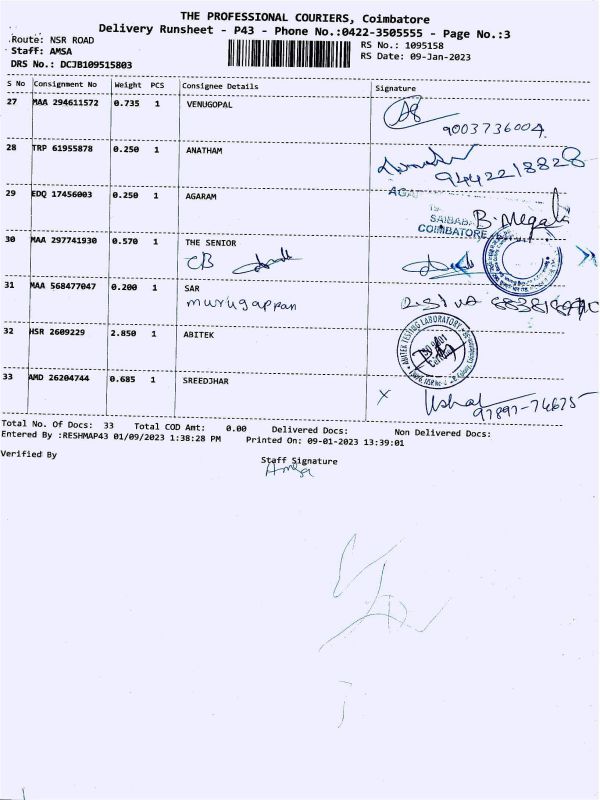 THE PROFESSIONAL COURIERS, Coimbatore
Delivery Runsheet - P43 - Phone No.:0422-3505555 - Page No.:3
Route: NSR ROAD
RS No.: 1095158
Staff: AMSA
RS Date: 09-Jan-2023
DRS No.: DCJB109515803
S No Consignment No Weight PCS Consignee Details Signature
27 MAA 294611572 0.735 1 VENUGOPAL
9003736004
28 TRP 61955878 0.250 1 ANATHAM
9442218828
29 EDQ 17456003 0.250 1 AGARAM
SAIBABA
COIMBATORE
B. Megala
30 MAA 297741930 0.570 1 THE SENIOR
CB
31 MAA 568477047 0.200 1 SAR
murugappan
32 HSR 2609229 2.850 1 ABITEK
ABITEK TESTING LABORATORY
33 AMD 26204744 0.685 1 SREEDJHAR
X
97897-74675
Total No. Of Docs: 33 Total COD Amt: 0.00 Delivered Docs: Non Delivered Docs:
Entered By :RESHMAP43 01/09/2023 1:38:28 PM Printed On: 09-01-2023 13:39:01
Verified By
Staff Signature
Amsa